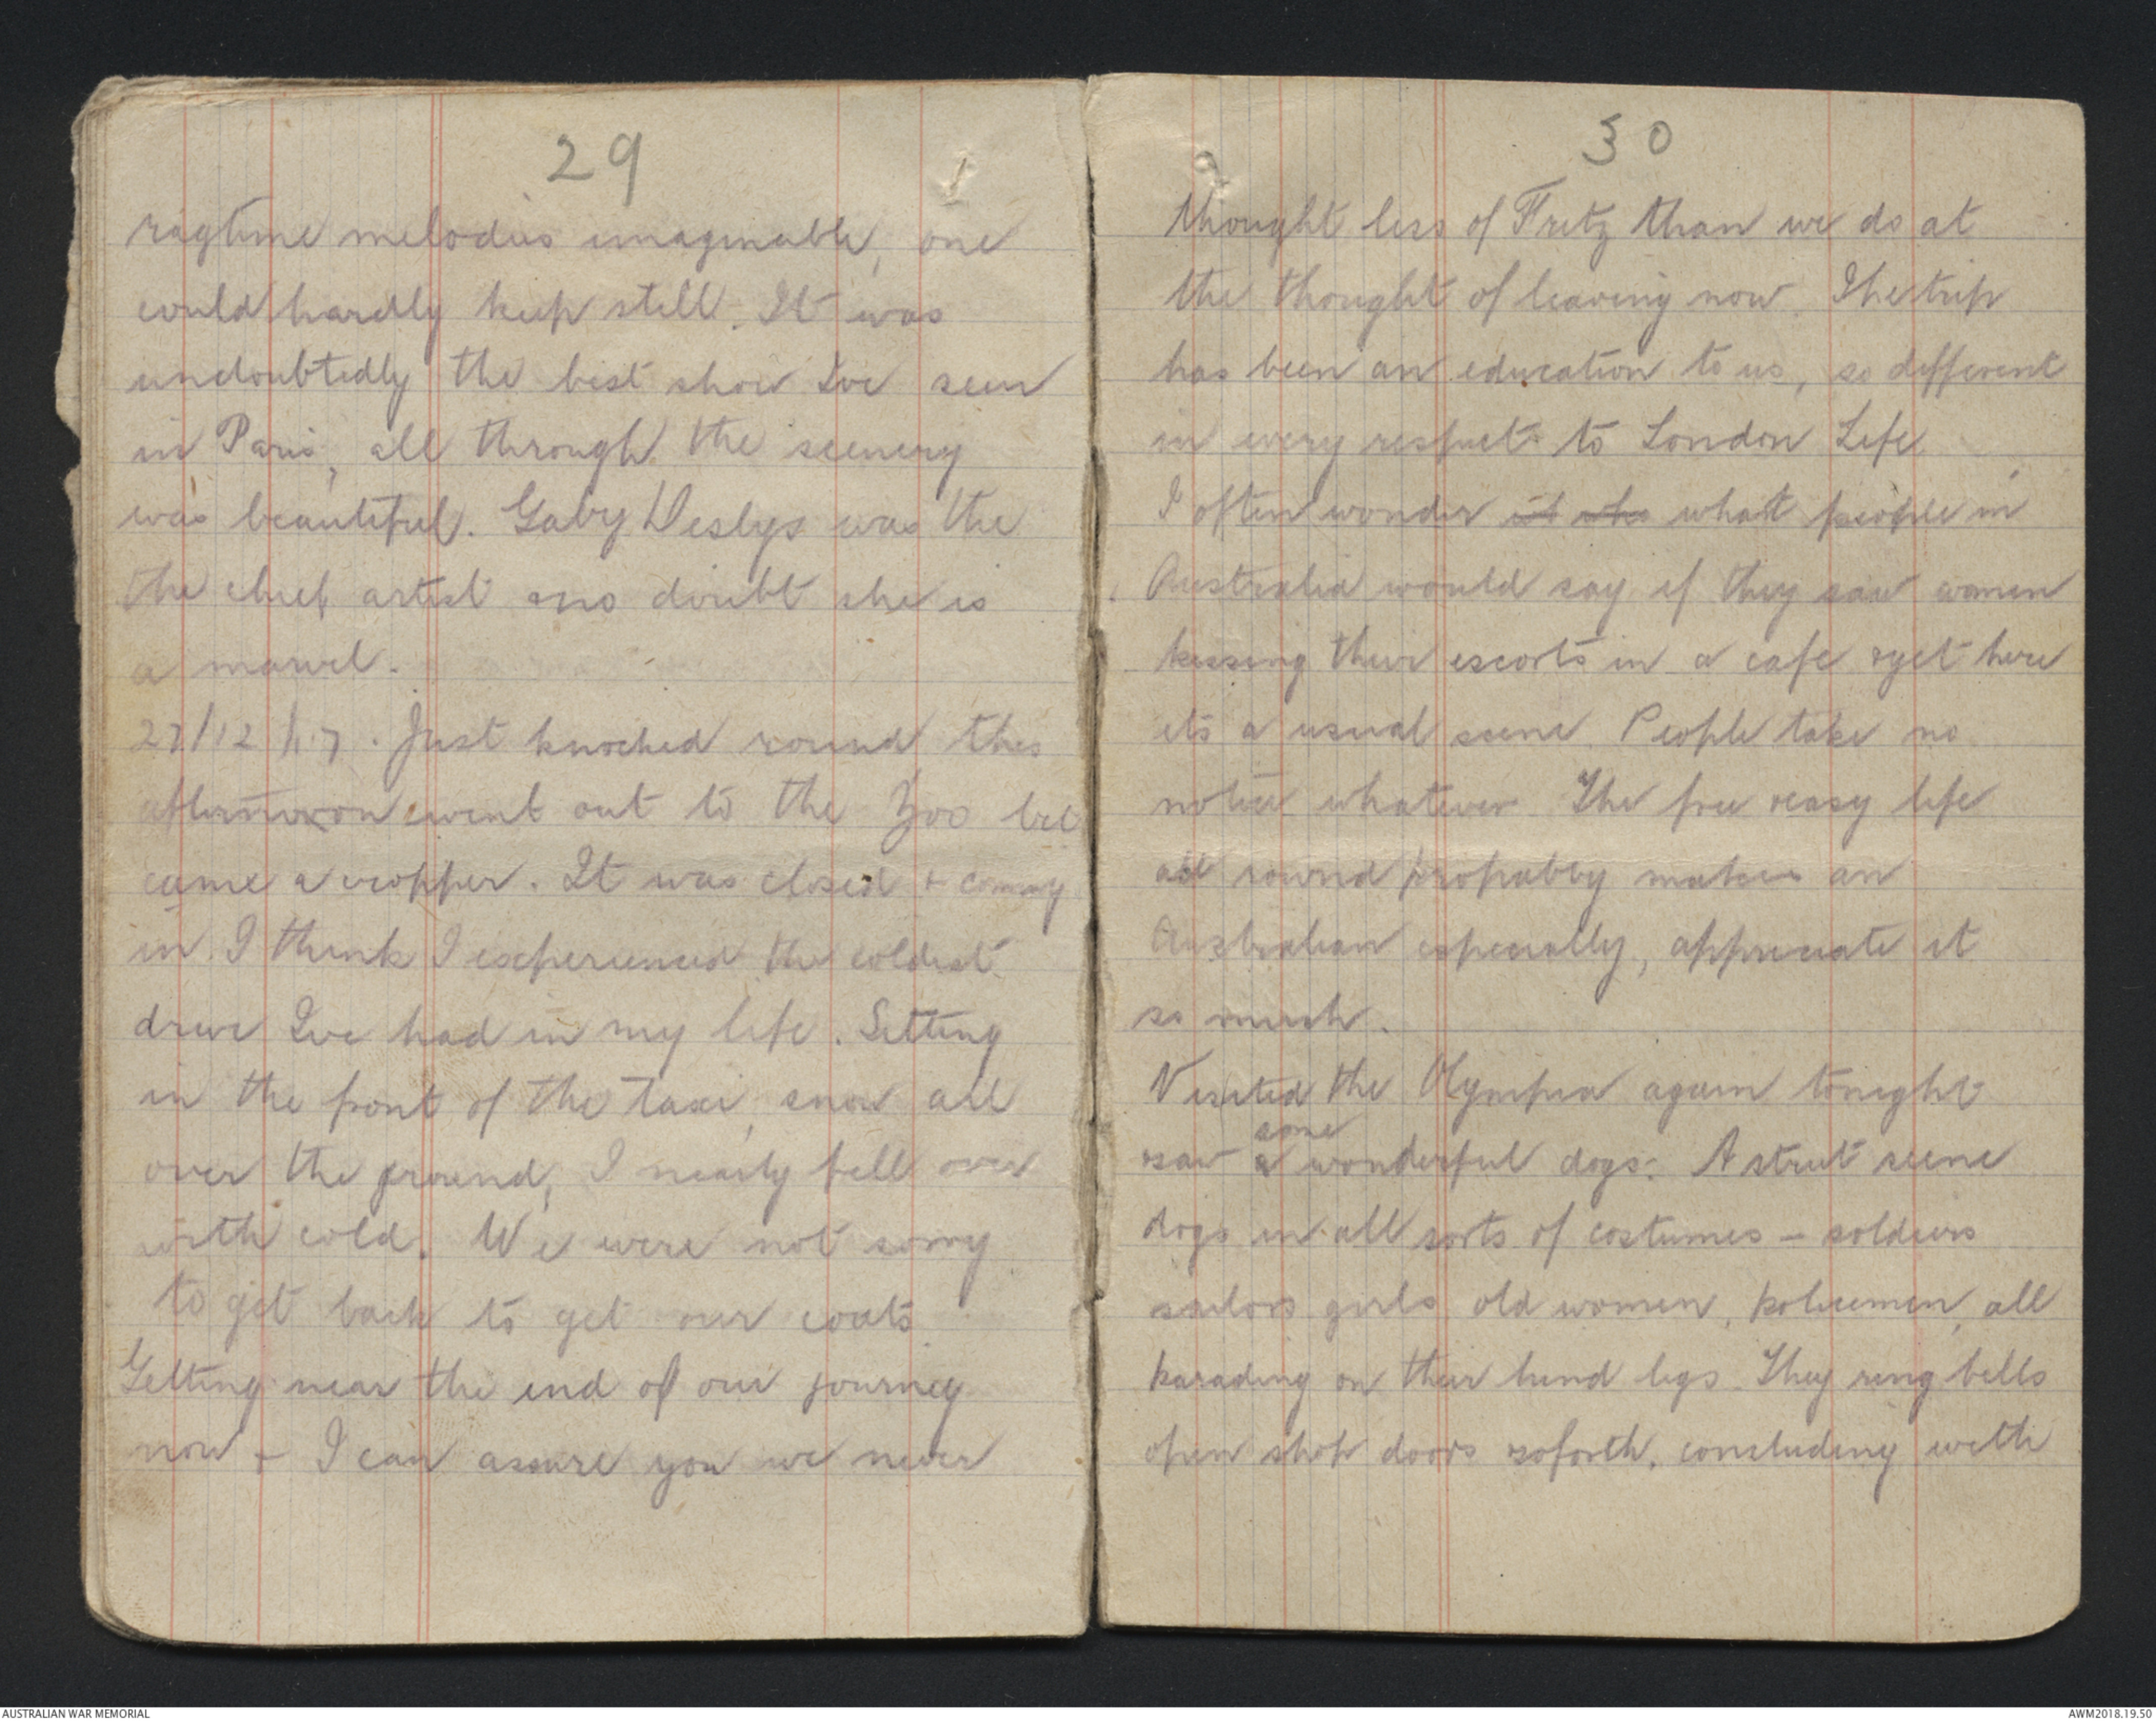 29
ragtime melodies imaginable, one
could hardly keep still. It was
undoubtedly the best show Ive seen
in Paris, all through the scenery
was beautiful. Gaby Deslys was the
the chief artist & no doubt she is
a marvel.
27/12/17. Just knocked round this
afternoon & went out to the Zoo but
came a cropper. It was closed & coming
in I think I experienced the coldest
drive Ive had in my life. Sitting
in the front of the taxi, snow all
over the ground, I nearly fell over
with cold. We were not sorry
to get back to get our coats.
Getting near the end of our journey
now & I can assure you we never
30
thought less of Fritz than we do at
the thought of leaving now. The trip
has been an education to us, so different
in every respect to London Life.
I often wonder what people in
Australia would say if they saw women
kissing their escorts in a cafe & yet here
its a usual scene. People take no
notice whatever. The free & easy life
all round propabby makes an
Australian especially, appreciate it
so much.
Visited the Olympia again tonight
& saw some wonderful dogs. A street scene
dogs in all sorts of costumes - soldiers
sailors girls old women, policemen, all
parading on their hind legs. They ring bells
open shop doors & soforth, concluding with
AUSTRALIAN WAR MEMORIAL
AWM2018.19.50